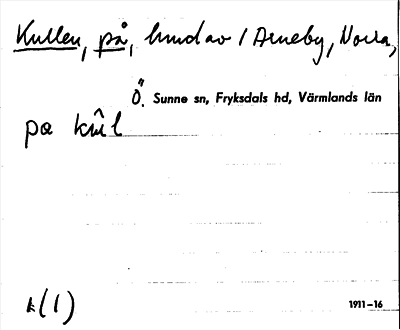 Kullen, på, hmd av 1 Arneby, Norra,
Ö. Sunne sn, Fryksdals hd, Värmlands län
pa kûl
k(1)
1911-16